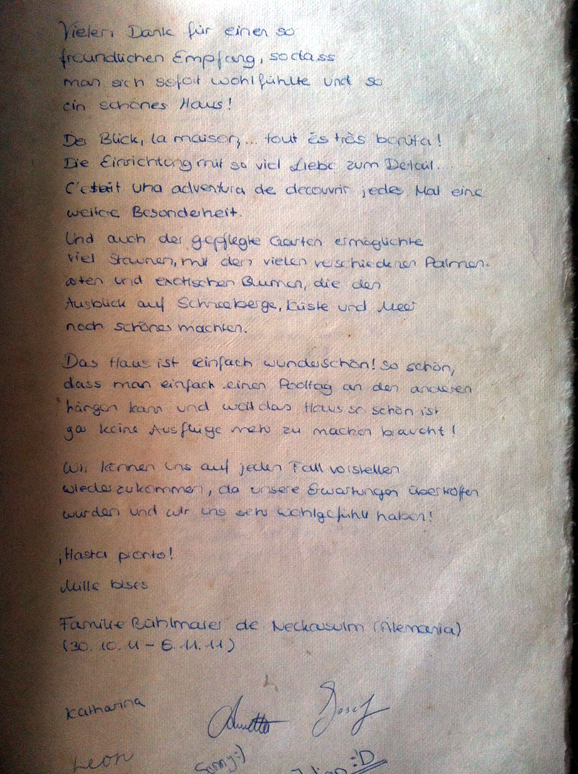 Vielen Dank für einen so
freundlichen Empfang, sodass
man sich sofort wohlfühlte und so
ein schönes Haus!
Der Blick, la maison,... tout és très bonita!
Die Einrichtung mit so viel Liebe zum Detail.
C'était una adventura de decouvrir jedes Mal eine
weitere Besonderheit.
Und auch der gepflegte Garten ermöglichte
viel Staunen, mit den vielen verschiedenen Palmen-
arten und exotischen Blumen, die den
Ausblick auf Schneeberge, Küste und Meer
noch schöner machten.
Das Haus ist einfach wunderschön! So schön,
dass man einfach einen Pooltag an den anderen
hängen kann und weil das Haus so schön ist
gar keine Ausflüge mehr zu machen braucht!
Wir können uns auf jeden Fall vorstellen
wiederzukommen, da unsere Erwartungen übertroffen
wurden und wir uns sehr wohlgefühlt haben!
¡Hasta pronto!
Mille bises
Familie Bühlmaier de Neckarsulm (Alemania)
(30.10.11 - 6.11.11)
Katharina Annette Josef
Leon Sunny:) :D